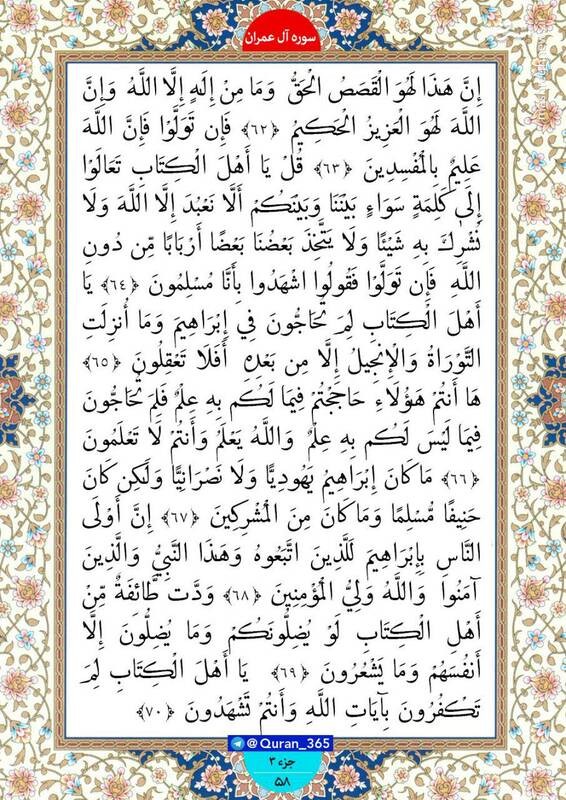 سوره آل عمران
إِنَّ هَذَا لَهُوَ الْقَصَصُ الْحَقُّ وَمَا مِنْ إِلَهٍ إِلَّا اللَّهُ وَإِنَّ
اللَّهَ لَهُوَ الْعَزِيزُ الْحَكِيمُ ﴿٦٢﴾ فَإِن تَوَلَّوْا فَإِنَّ اللَّهَ
عَلِيمٌ بِالْمُفْسِدِينَ ﴿٦٣﴾ قُلْ يَا أَهْلَ الْكِتَابِ تَعَالَوْا
إِلَى كَلِمَةٍ سَوَاءٍ بَيْنَنَا وَبَيْنَكُمْ أَلَّا نَعْبُدَ إِلَّا اللَّهَ وَلَا
نُشْرِكَ بِهِ شَيْئًا وَلَا يَتَّخِذَ بَعْضُنَا بَعْضًا أَرْبَابًا مِّن دُونِ
اللَّهِ فَإِن تَوَلَّوْا فَقُولُوا اشْهَدُوا بِأَنَّا مُسْلِمُونَ ﴿٦٤﴾ يَا
أَهْلَ الْكِتَابِ لِمَ تُحَاجُّونَ فِي إِبْرَاهِيمَ وَمَا أُنزِلَتِ
التَّوْرَاةُ وَالْإِنجِيلُ إِلَّا مِن بَعْدِهِ أَفَلَا تَعْقِلُونَ ﴿٦٥﴾
هَا أَنتُمْ هَؤُلَاءِ حَاجَجْتُمْ فِيمَا لَكُم بِهِ عِلْمٌ فَلِمَ تُحَاجُّونَ
فِيمَا لَيْسَ لَكُم بِهِ عِلْمٌ وَاللَّهُ يَعْلَمُ وَأَنتُمْ لَا تَعْلَمُونَ
﴿٦٦﴾ مَا كَانَ إِبْرَاهِيمُ يَهُودِيًّا وَلَا نَصْرَانِيًّا وَلَكِن كَانَ
حَنِيفًا مُّسْلِمًا وَمَا كَانَ مِنَ الْمُشْرِكِينَ ﴿٦٧﴾ إِنَّ أَوْلَى
النَّاسِ بِإِبْرَاهِيمَ لَلَّذِينَ اتَّبَعُوهُ وَهَذَا النَّبِيُّ وَالَّذِينَ
آمَنُوا وَاللَّهُ وَلِيُّ الْمُؤْمِنِينَ ﴿٦٨﴾ وَدَّت طَّائِفَةٌ مِّنْ
أَهْلِ الْكِتَابِ لَوْ يُضِلُّونَكُمْ وَمَا يُضِلُّونَ إِلَّا
أَنفُسَهُمْ وَمَا يَشْعُرُونَ ﴿٦٩﴾ يَا أَهْلَ الْكِتَابِ لِمَ
تَكْفُرُونَ بِآيَاتِ اللَّهِ وَأَنتُمْ تَشْهَدُونَ ﴿٧٠﴾
@Quran_365
جزء ۳
۵۸